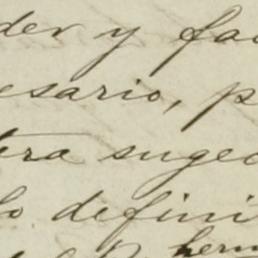 der y fac
esario, p
tra sugec
ho defini
herm